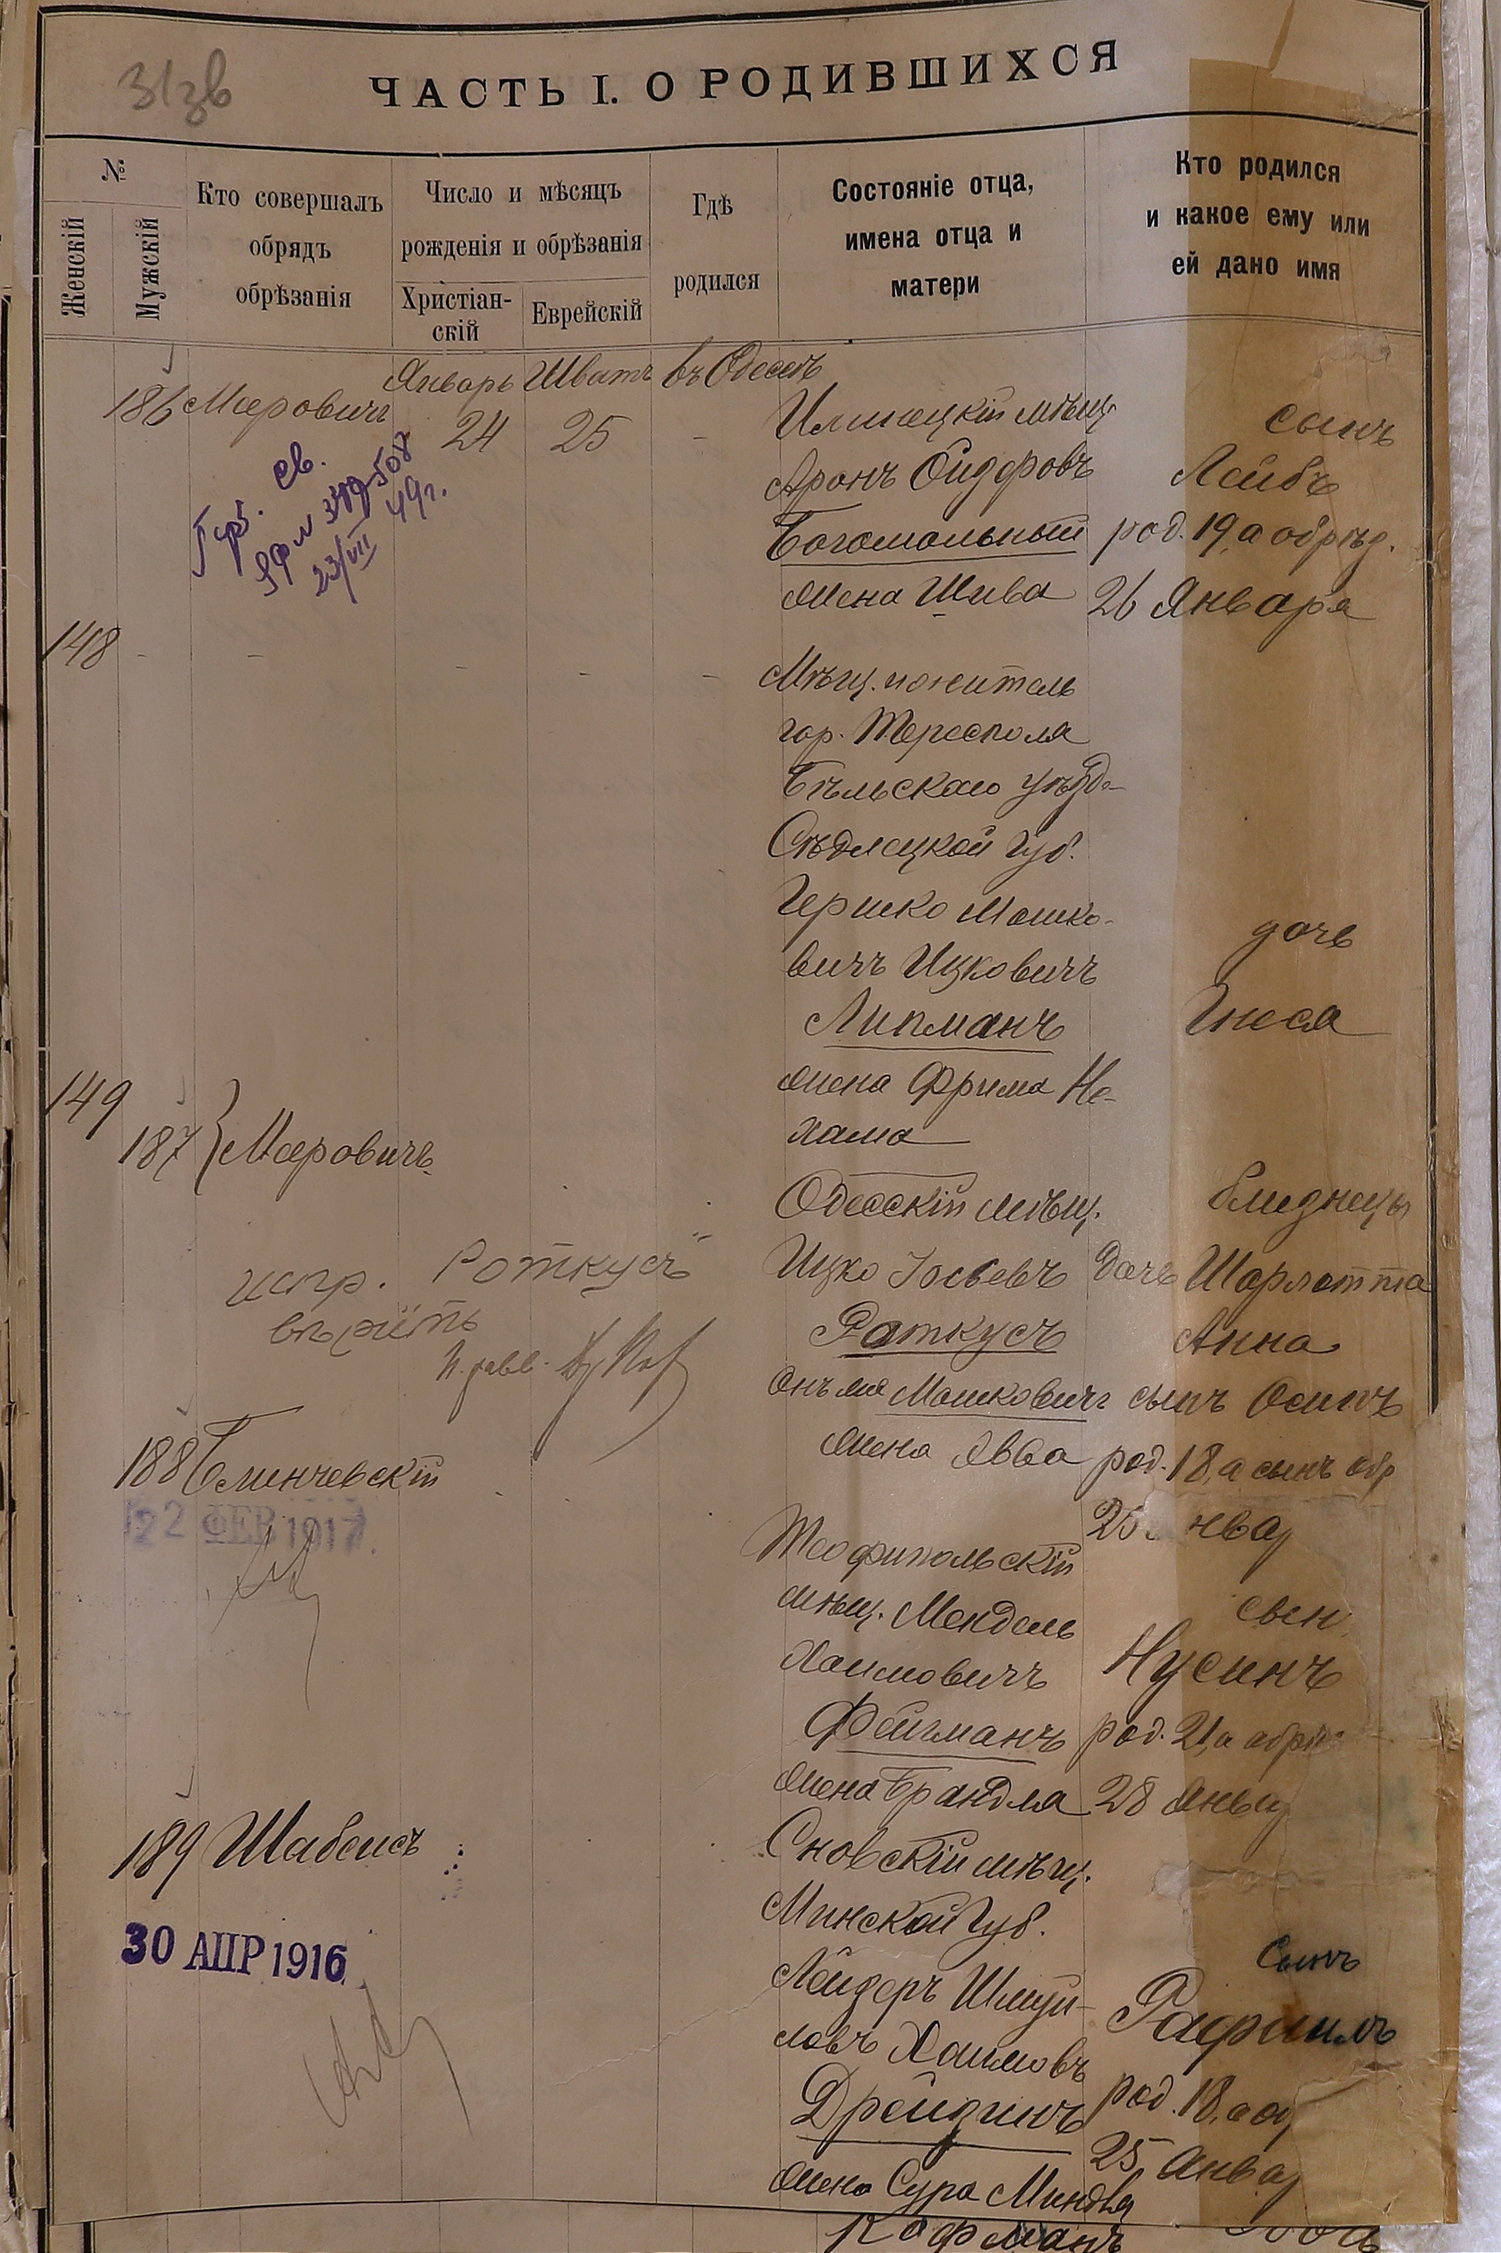 31зв
ЧАСТЬ I. О РОДИВШИХСЯ
№
Женскій
Мужскій
Кто совершалъ
обрядъ
обрѣзанія
Число и мѣсяцъ
рожденія и обрѣзанія
Христіан-
скій
Еврейскій
Гдѣ
родился
Состояніе отца,
имена отца и
матери
Кто родился
и какое ему или
ей дано имя
Январь Шватъ въ Одессѣ
186 Меровичъ 24 25 -
Герб. св.
23/VII 49г.
Илинецкій мѣщ.
Аронъ Сидеровъ
Богомольный
жена Шива
сынъ
Лейбъ
род. 19, а обрѣз.
26 Января
148 - - - - -
Мѣщ. и житель
гор. Тересполя
Бѣльскаго уѣзда
Сѣдлецкой губ.
Гершко Мошко-
вичъ Ицковичъ
Липманъ
жена Фрима Не-
хама
дочь
Гнеся
149
187 } Меровичъ
испр. Роткусъ
вѣрить
И. равв.
Одесскій мѣщ.
Ицко Іосьевъ
Раткусъ
онъ же Мошковичъ
жена Явва
близнецы
дочь Шарлотта
Анна
сынъ Осипъ
род. 18, а сынъ обр
25 Янва
188 Блинчевскій
22 ФЕВ 1917.
Теофипольскій
мѣщ. Мендель
Хаимовичъ
Фейгманъ
жена Брандля
сын
Нусинъ
род. 21, а обрѣ
28 Янв
189 Шабсисъ
30 АПР 1916
Сновскій мѣщ.
Минской губ.
Лейзеръ Шмуй-
ловъ Хаимовъ
Дрейзинъ
жена Сура Миндля
сынъ
Рафаилъ
род. 18, а о
25 Янва
Кофманъ